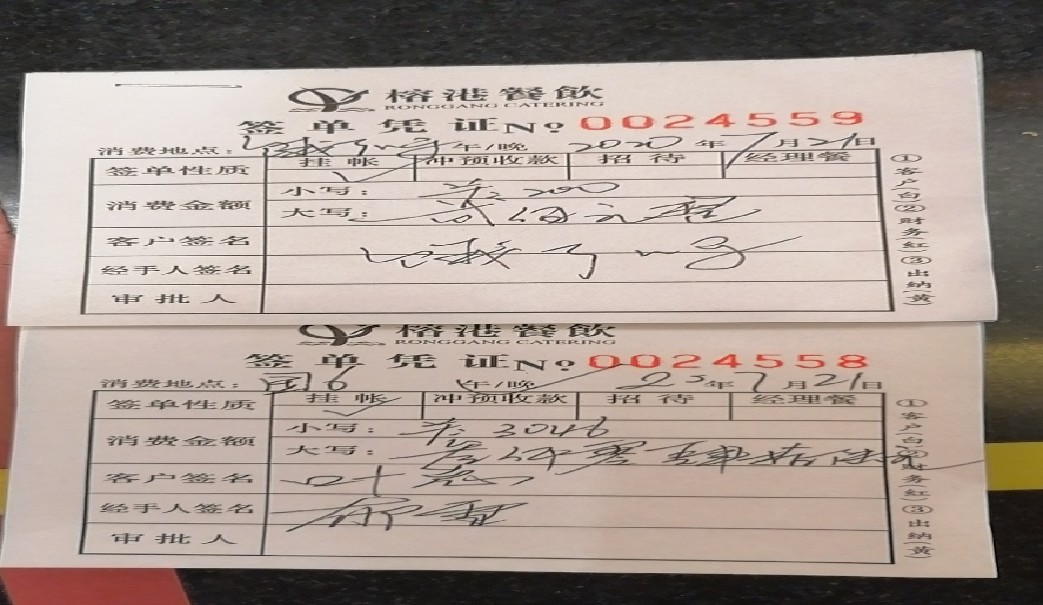 榕港餐飲
RONGGANG CATERING
签单凭证 No 0024559
消费地点： 午/晚 2020年7月21日
签单性质 挂帐 冲预收款 招待 经理餐
消费金额 小写： 200
大写： 贰佰元整
客户签名
经手人签名
审批人
①客户(白)②财务(红)③出纳(黄)
榕港餐飲
RONGGANG CATERING
签单凭证 No 0024558
消费地点： 午/晚 年7月21日
签单性质 挂帐 冲预收款 招待 经理餐
消费金额 小写： 3046
大写：
客户签名
经手人签名
审批人
①客户(白)②财务(红)③出纳(黄)